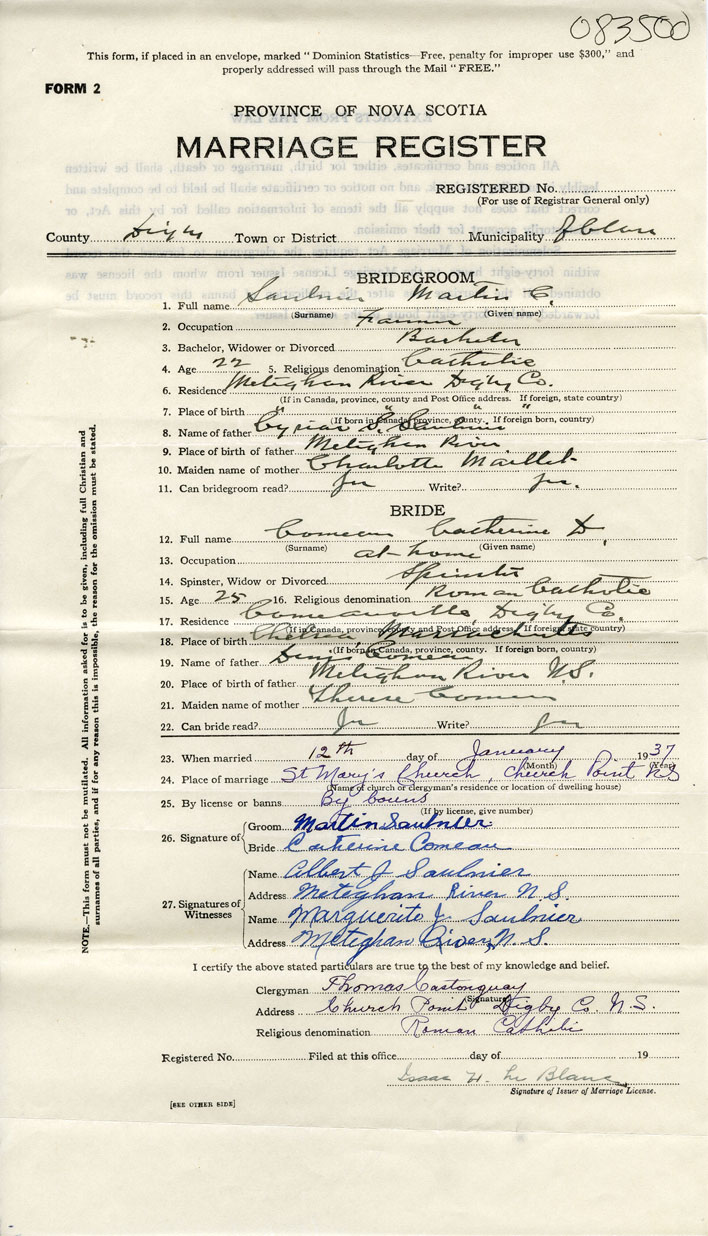 083500
This form, if placed in an envelope, marked "Dominion Statistics—Free, penalty for improper use $300," and
properly addressed will pass through the Mail "FREE."
FORM 2
PROVINCE OF NOVA SCOTIA
MARRIAGE REGISTER
REGISTERED No.
(For use of Registrar General only)
County Digby Town or District Municipality of Clare
BRIDEGROOM
1. Full name Saulnier Martin C.
(Surname) (Given name)
2. Occupation Farmer
3. Bachelor, Widower or Divorced Bachelor
4. Age 22 5. Religious denomination Catholic
6. Residence Meteghan River Digby Co.
(If in Canada, province, county and Post Office address. If foreign, state country)
7. Place of birth " " " "
(If born in Canada, province, county. If foreign born, country)
8. Name of father S. Saulnier
9. Place of birth of father Meteghan River
10. Maiden name of mother Charlotte Maillet
11. Can bridegroom read? Yes Write? Yes.
BRIDE
12. Full name Comeau Catherine D.
(Surname) (Given name)
13. Occupation at-home
14. Spinster, Widow or Divorced Spinster
15. Age 25 16. Religious denomination Roman Catholic
17. Residence Comeauville Digby Co.
(If in Canada, province, county and Post Office address. If foreign, state country)
18. Place of birth Chelsea, Massachusetts
(If born in Canada, province, county. If foreign born, country)
19. Name of father Denis Comeau
20. Place of birth of father Meteghan River N.S.
21. Maiden name of mother Therese Comeau
22. Can bride read? Yes Write? Yes
23. When married 12th day of January 1937
(Month) (Year)
24. Place of marriage St Mary's Church, Church Point N.S
(Name of church or clergyman's residence or location of dwelling house)
25. By license or banns By banns
(If by license, give number)
26. Signature of Groom Martin Saulnier.
Bride Catherine Comeau
27. Signatures of Witnesses
Name Albert J Saulnier
Address Meteghan River N.S.
Name Marguerite J. Saulnier
Address Meteghan River, N.S.
I certify the above stated particulars are true to the best of my knowledge and belief.
Clergyman Thomas Castonguay
(Signature)
Address Church Point Digby Co. N.S.
Religious denomination Roman Catholic
Registered No. Filed at this office day of 19
Isaac H. Le Blanc
Signature of Issuer of Marriage License.
[SEE OTHER SIDE]
NOTE.—This form must not be mutilated. All information asked for is to be given, including full Christian and
surnames of all parties, and if for any reason this is impossible, the reason for the omission must be stated.